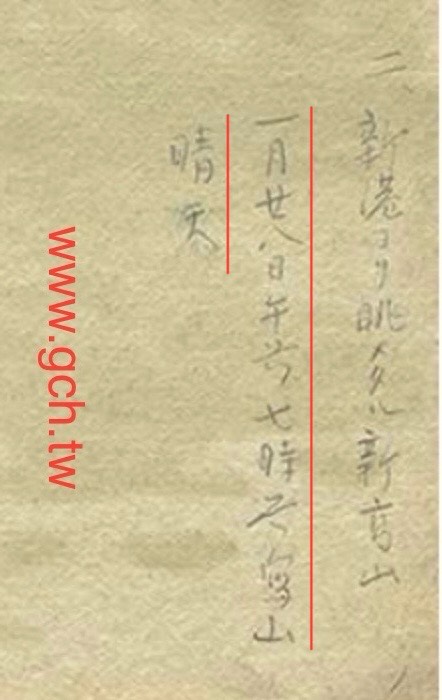 二、
新港ヨリ眺メタル新高山
一月廿八日午前七時 寫山
晴天
www.gch.tw